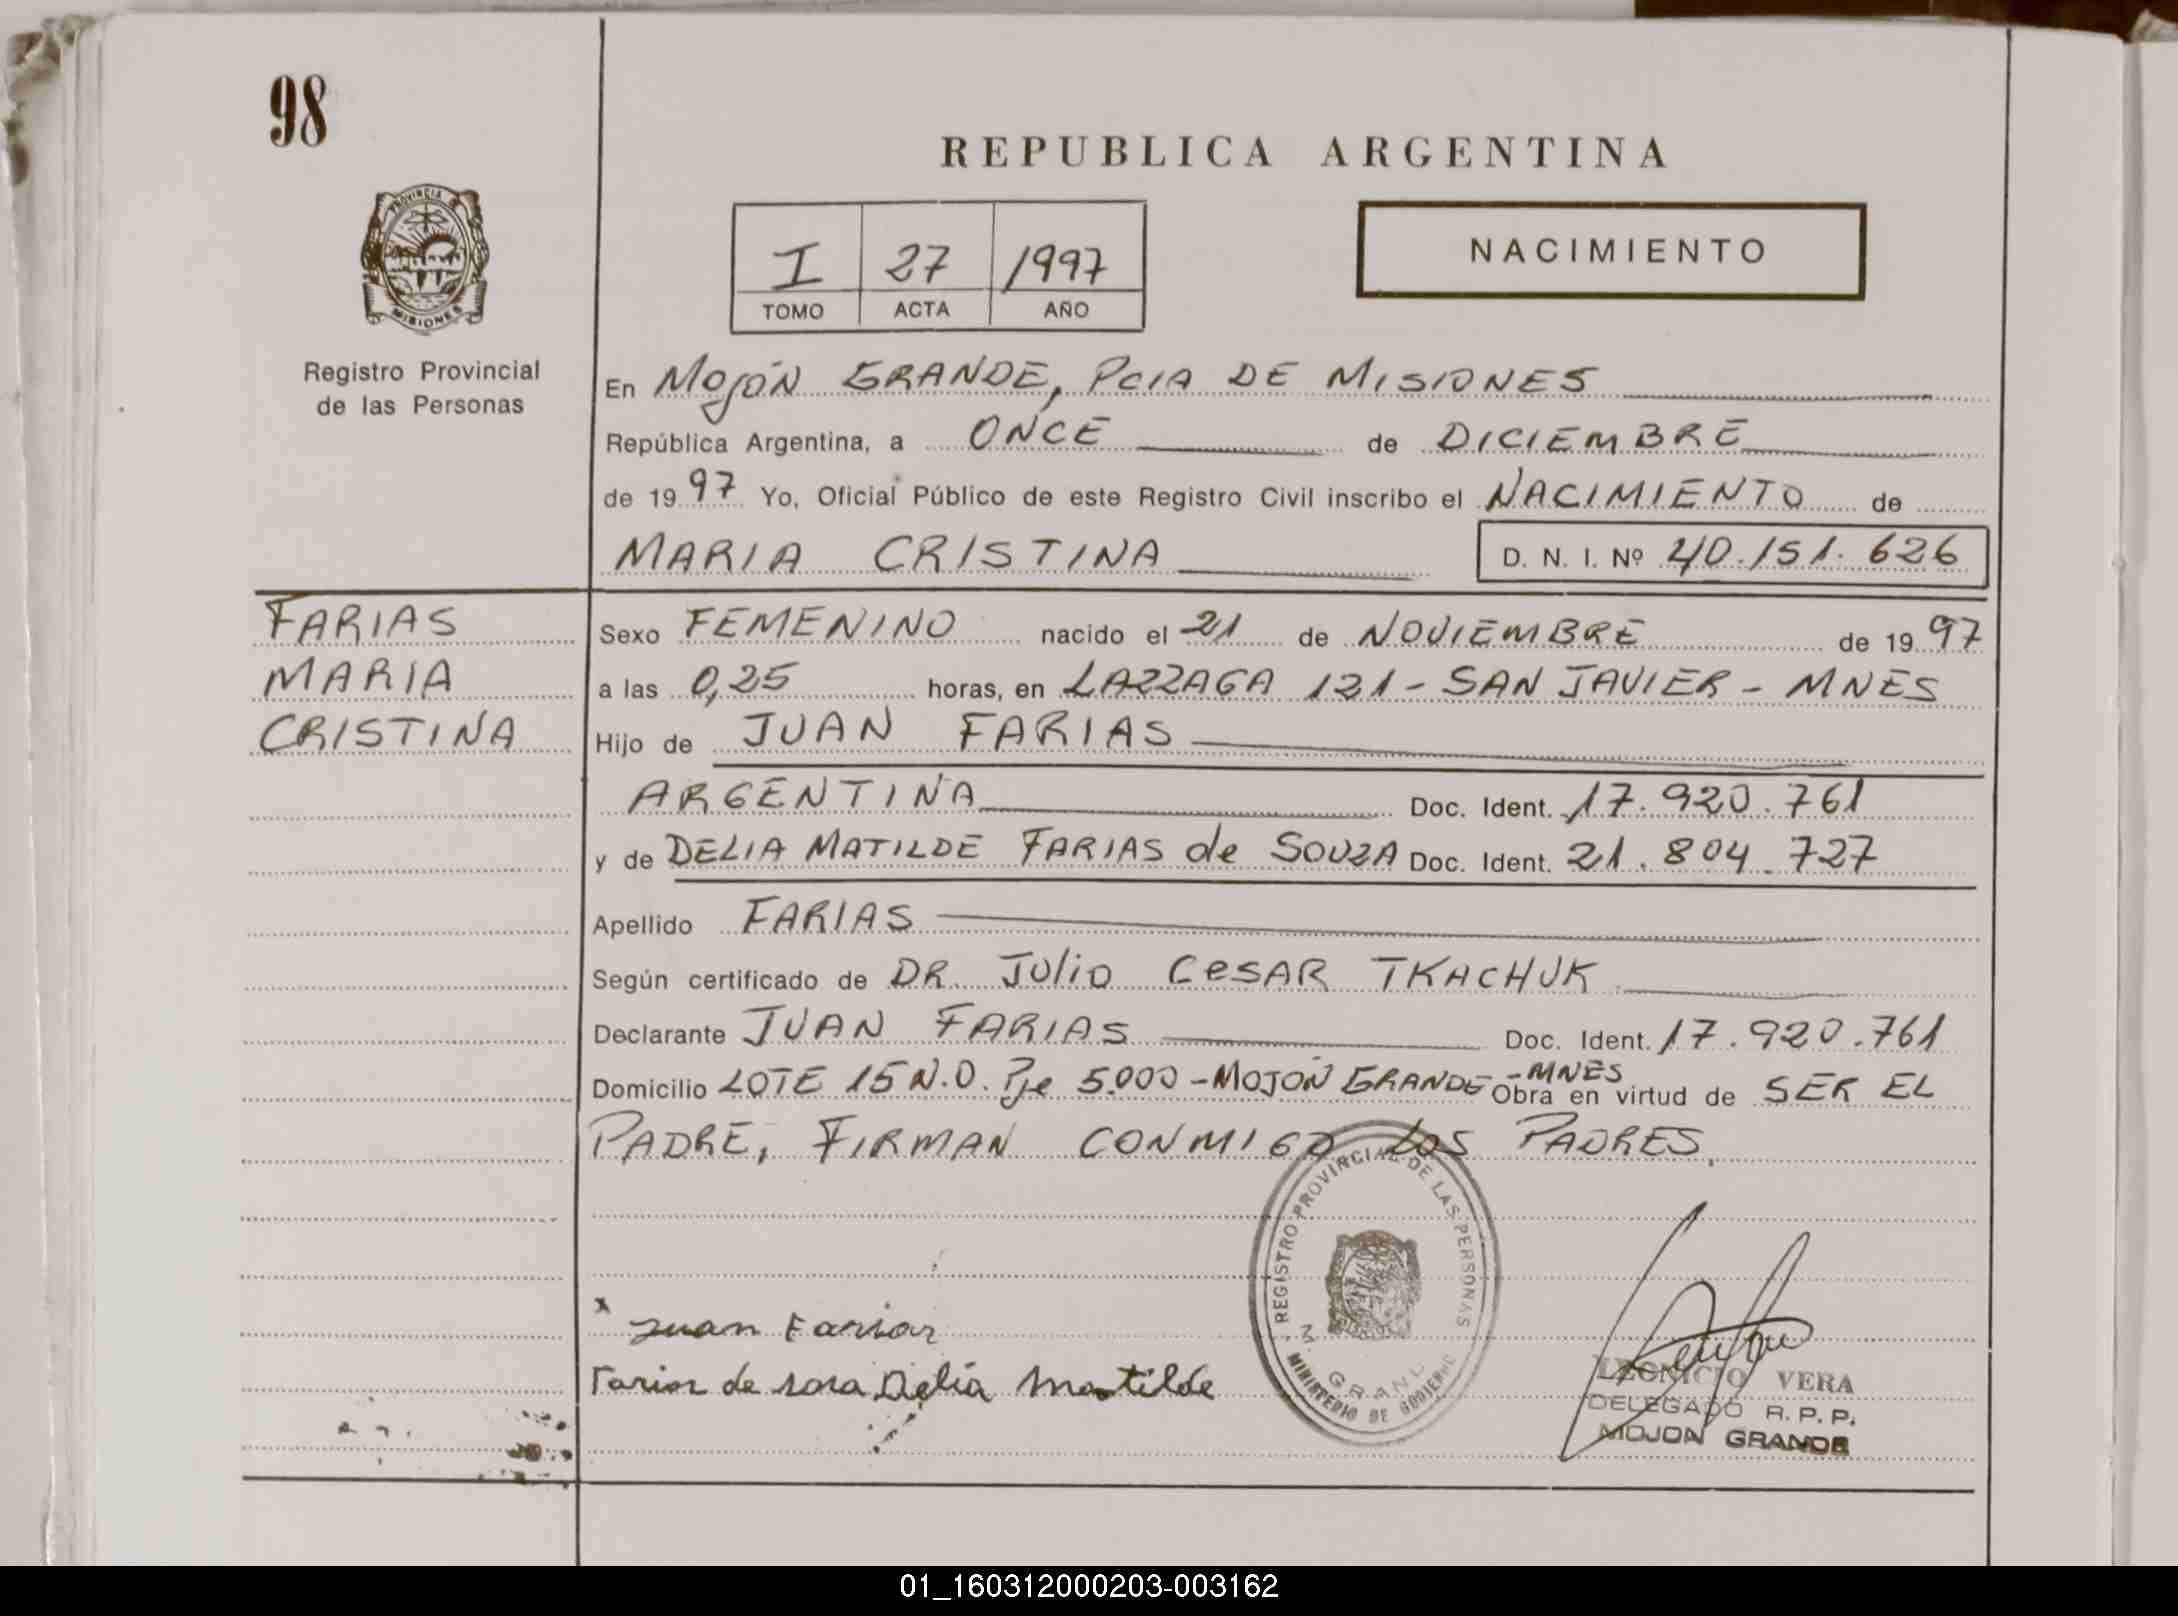 98
REPUBLICA ARGENTINA
PROVINCIA DE
MISIONES
I 27 1997
TOMO ACTA AÑO
NACIMIENTO
Registro Provincial
de las Personas
En MOJÓN GRANDE, PCIA DE MISIONES
República Argentina, a ONCE de DICIEMBRE
de 19 97 Yo, Oficial Público de este Registro Civil inscribo el NACIMIENTO de
MARIA CRISTINA D. N. I. Nº 40.151.626
FARIAS
MARIA
CRISTINA
Sexo FEMENINO nacido el 21 de NOVIEMBRE de 19 97
a las 0,25 horas, en LAZZAGA 121 - SAN JAVIER - MNES
Hijo de JUAN FARIAS
ARGENTINA Doc. Ident. 17.920.761
y de DELIA MATILDE FARIAS de SOUZA Doc. Ident. 21.804.727
Apellido FARIAS
Según certificado de DR. JULIO CESAR TKACHUK
Declarante JUAN FARIAS Doc. Ident. 17.920.761
Domicilio LOTE 15 N.O. Pje 5.000 - MOJON GRANDE - MNES Obra en virtud de SER EL
PADRE, FIRMAN CONMIGO LOS PADRES.
REGISTRO PROVINCIAL DE LAS PERSONAS
MINISTERIO DE GOBIERNO
Juan Farias
Farias de sosa Delia Matilde
LEONICIO VERA
DELEGADO R.P.P.
MOJON GRANDE
01_160312000203-003162